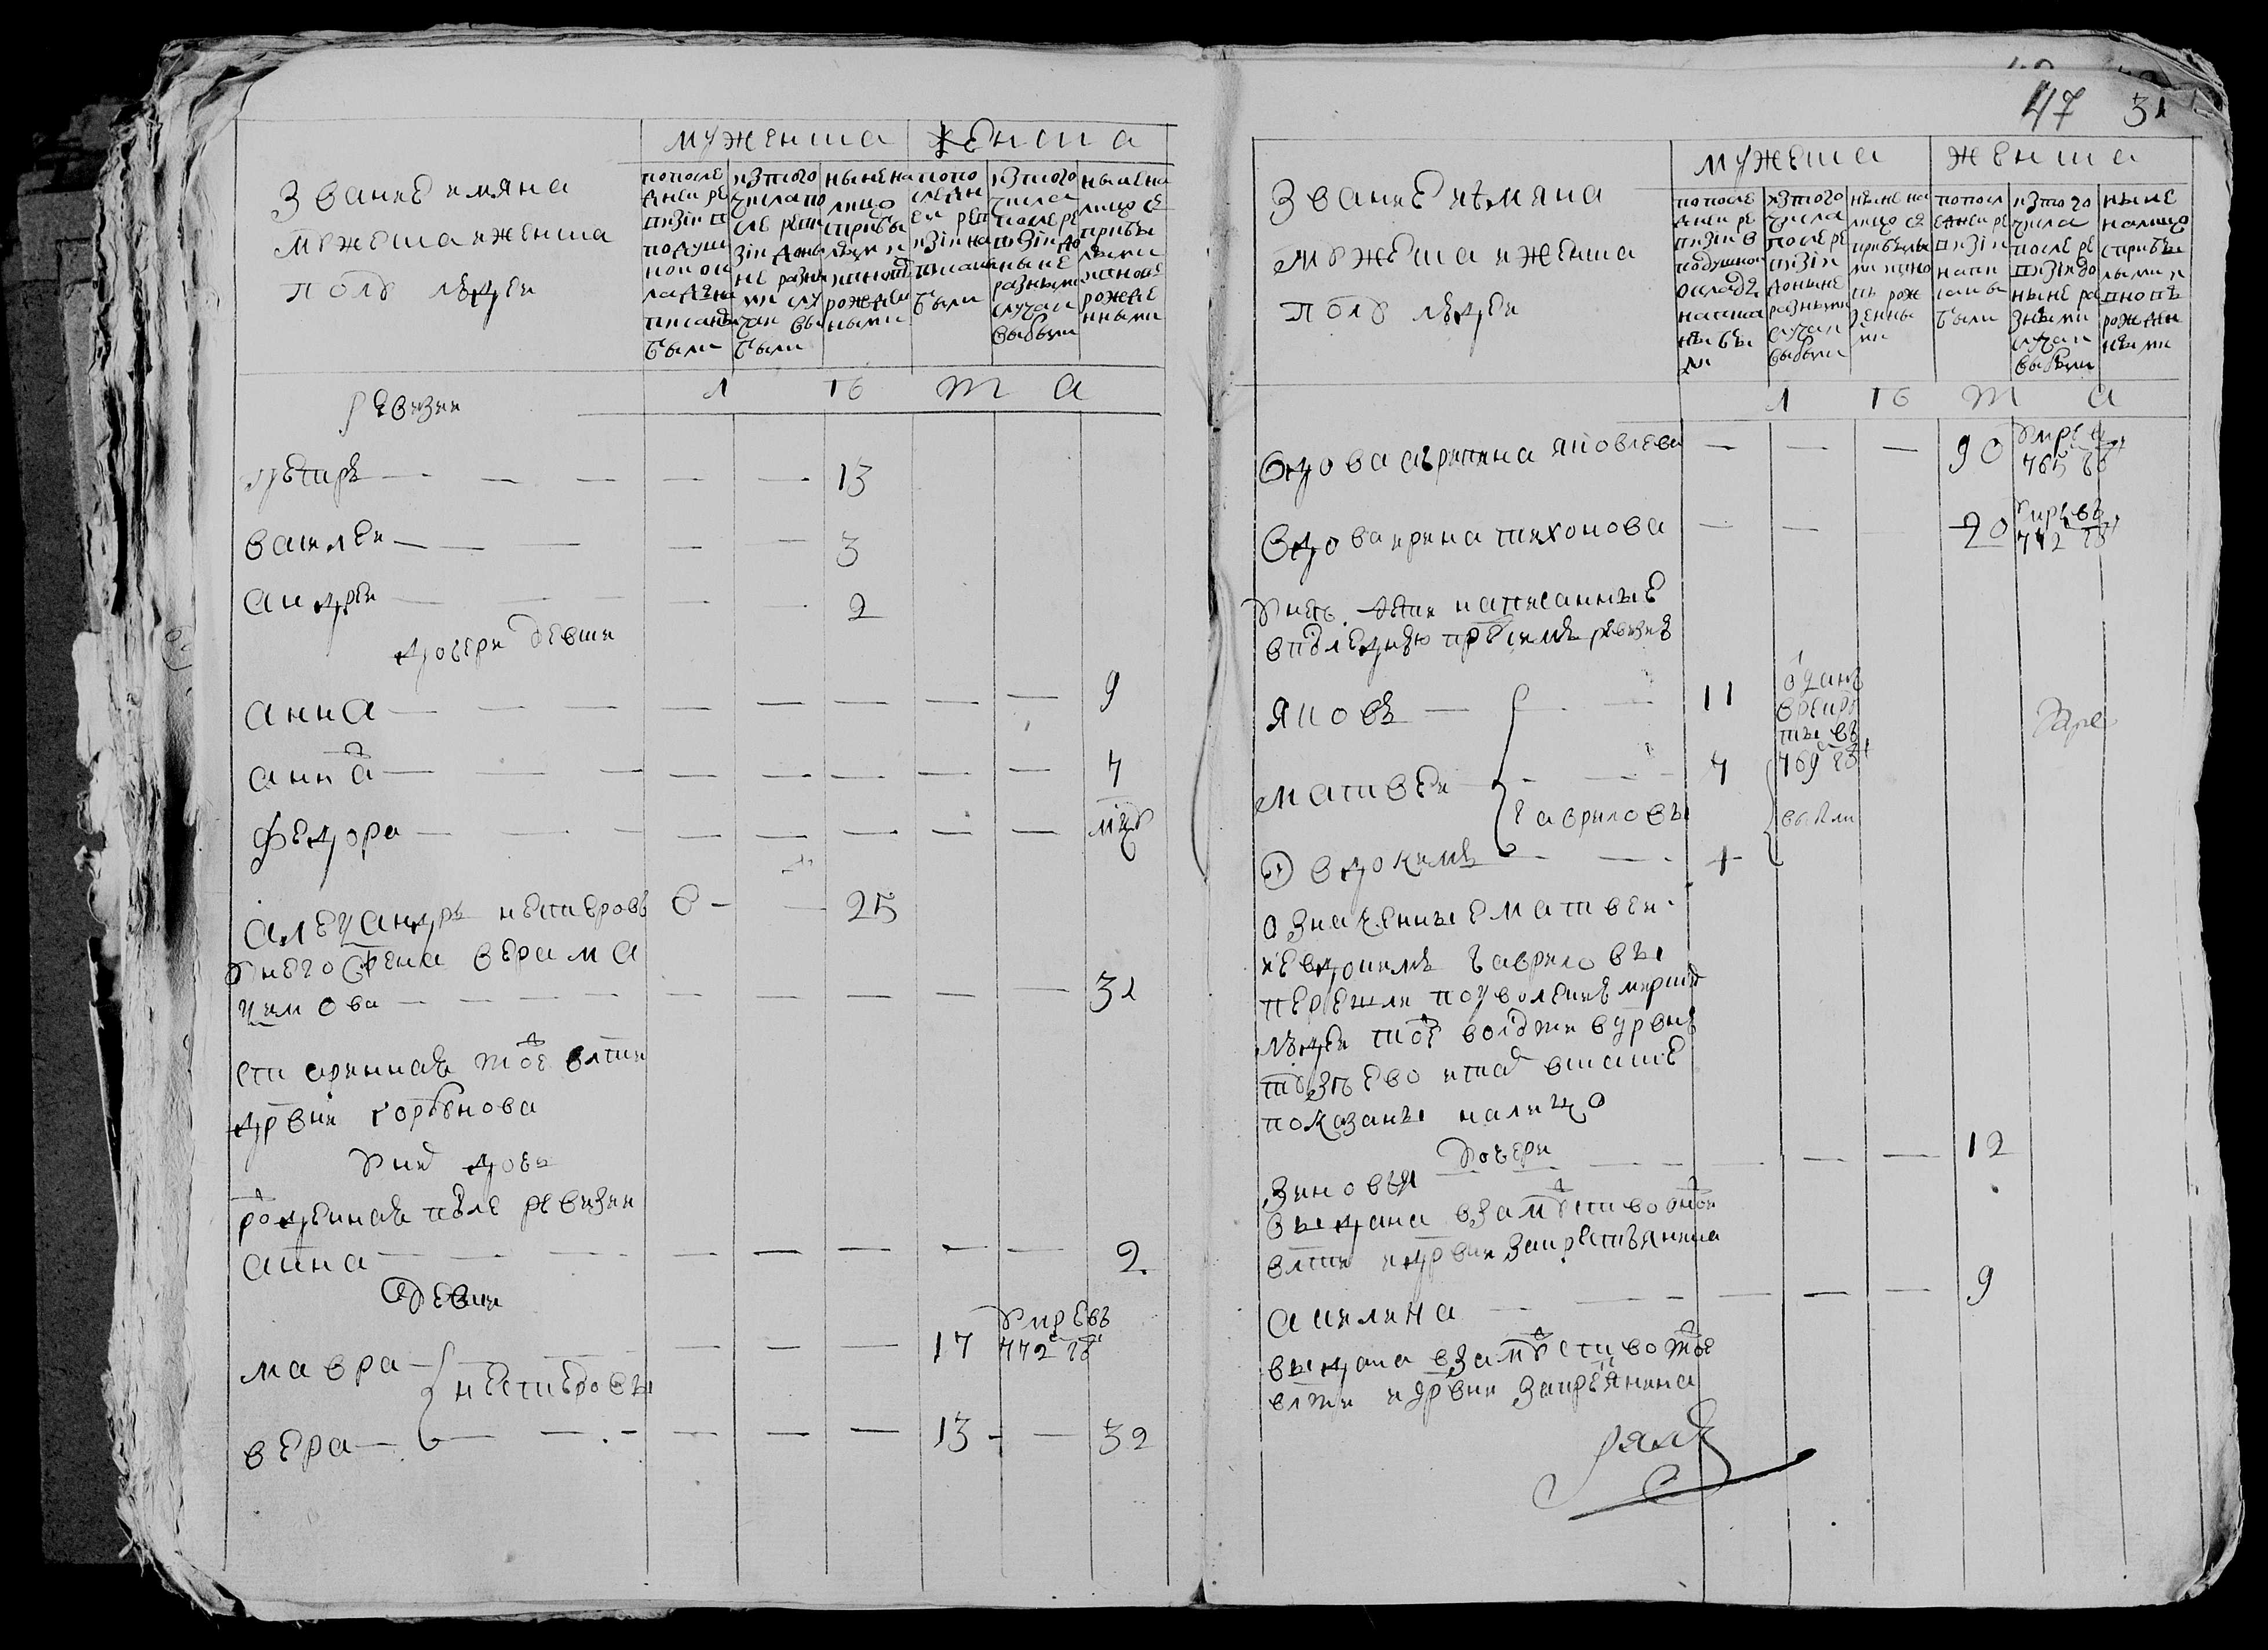 звание имяна
мужеска и женска
полу людей
мужеска
женска
по после
дней ре
визіи в
подуш
ном ок
ладе на
писаны
были
ис того
числа по
сле реви
зіи до ны
не разны
ми слу
чаи вы
были
ныне на
лицо
с прибы
лыми и
вновь
рожден
ными
по по
следн
ей рев
изіи на
писаны
были
ис того
числа
после ре
визіи до
ныне
разными
случаи
выбыли
ныне на
лицо съ
прибы
лыми
и вновь
рожде
нными
ревизии
л ѣ т а
петръ 13
василей 3
андрей 2
дочери девки
анна 9
анна 7
федора
александръ нестеровъ 6 25
у него жена вера ма
ксимова 31
старинная тоей волости
дрвни горбунова
у них дочь
рожденная после ревизии
анна 2
девки
мавра 17 умре въ
772 г
нестеровы
вера 13 32
47 31
звание имяна
мужеска и женска
полу людей
мужеска
женска
по после
дней ре
визіи в
подушном
окладе
написа
ны бы
ли
ис того
числа
после ре
визіи
до ныне
разными
случаи
выбыли
ныне на
лицо съ
прибылы
ми и вно
вь рож
денны
ми
по посл
едней ре
визіи
напи
саны
были
ис того
числа
после ре
визіи до
ныне ра
зными
случаи
выбыли
ныне
налицо
с прибы
лыми и
вновь
рожден
ными
л ѣ т а
вдова агрипина яковлева 90 умре въ
765 г
вдова ирина тихонова 20 умре въ
772 г
у нихъ дети написанные
в последнюю пред симъ ревизию
яковъ 11 отданъ
в рекру
ты въ
769 г
матвей 7
гавриловы выбыли
евдокимъ 1
означенные матвей
и евдокимъ гавриловы
перешли по уволнению мирских
людей тоей волости в дрвню
показаны налицо
дочери
зиновья 12
выдана в замужство оной
влсти и дрвни за крестьянина
акилина 9
выдана в замужство тоей
влсти и дрвни за крестьянина